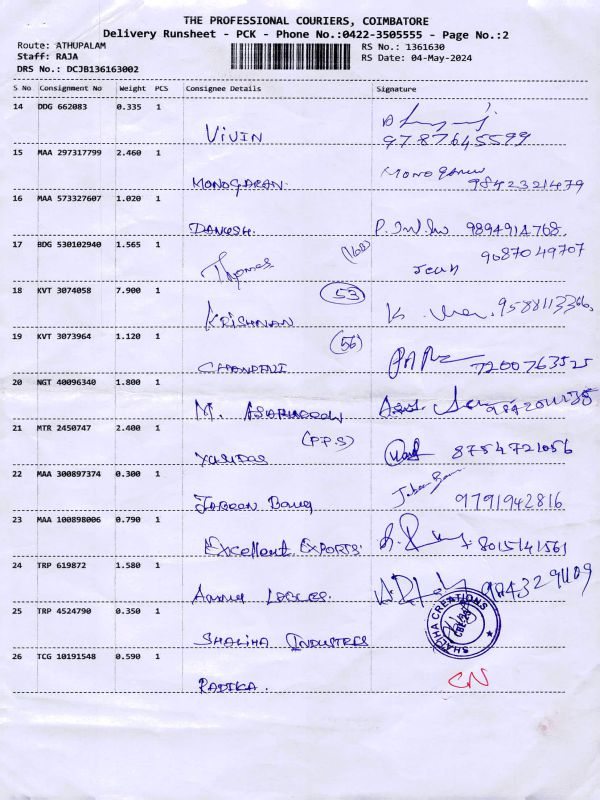 THE PROFESSIONAL COURIERS, COIMBATORE
Delivery Runsheet - PCK - Phone No.:0422-3505555 - Page No.:2
Route: ATHUPALAM
Staff: RAJA
DRS No.: DCJB136163002
RS No.: 1361630
RS Date: 04-May-2024
S No Consignment No Weight PCS Consignee Details Signature
14 DDG 662083 0.335 1
VIVIN 9787645599
15 MAA 297317799 2.460 1
MONOGARAN. MONOGARAN 9842321479
16 MAA 573327607 1.020 1
DANUSH. 9894914768
17 BDG 530102940 1.565 1
Thomas (168) 9087049707
18 KVT 3074058 7.900 1
KRISHNAN 53 K. 9588113366
19 KVT 3073964 1.120 1
CHANDANI (56) 7200763525
20 NGT 40096340 1.800 1
M.
21 MTR 2450747 2.400 1
(P.P.S) 8754721056
22 MAA 300897374 0.300 1
Jabeen Banu 9791942816
23 MAA 100898006 0.790 1
Excellent EXPORTS 8015141561
24 TRP 619872 1.580 1
25 TRP 4524790 0.350 1
SHALIHA INDUSTRES
SHALIHA CREATIONS
26 TCG 10191548 0.590 1
RADIKA. CN